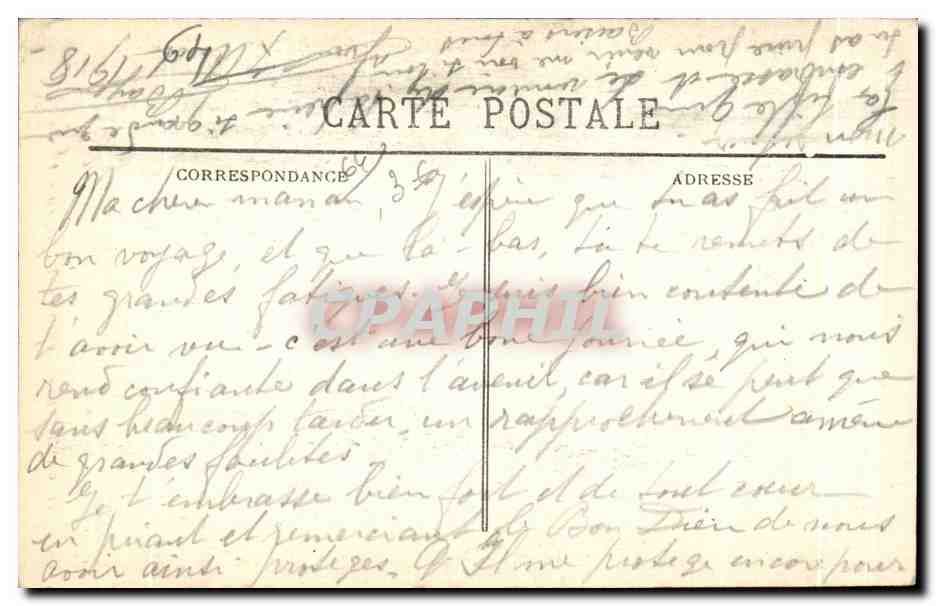 CARTE POSTALE
CORRESPONDANCE
ADRESSE
Ma chere maman, J'espère que tu as fait un
bon voyage, et que là-bas, tu te remets de
tes grandes fatigues. Je suis bien contente de
t'avoir vu - c'est une bone journée, qui nous
rend confiante dans l'avenir, car il se peut que
sans beaucoup tarder, un rapprochement amène
de grandes facilités
Je t'embrasse bien fort et de tout coeur
en priant et remerciant le Bon Dieu de nous
avoir ainsi protégés. Q Il me protege encore pour
t'embrasser et de
tu as prise pour venir me voir
Baisers à tous
1918
CPAPHIL